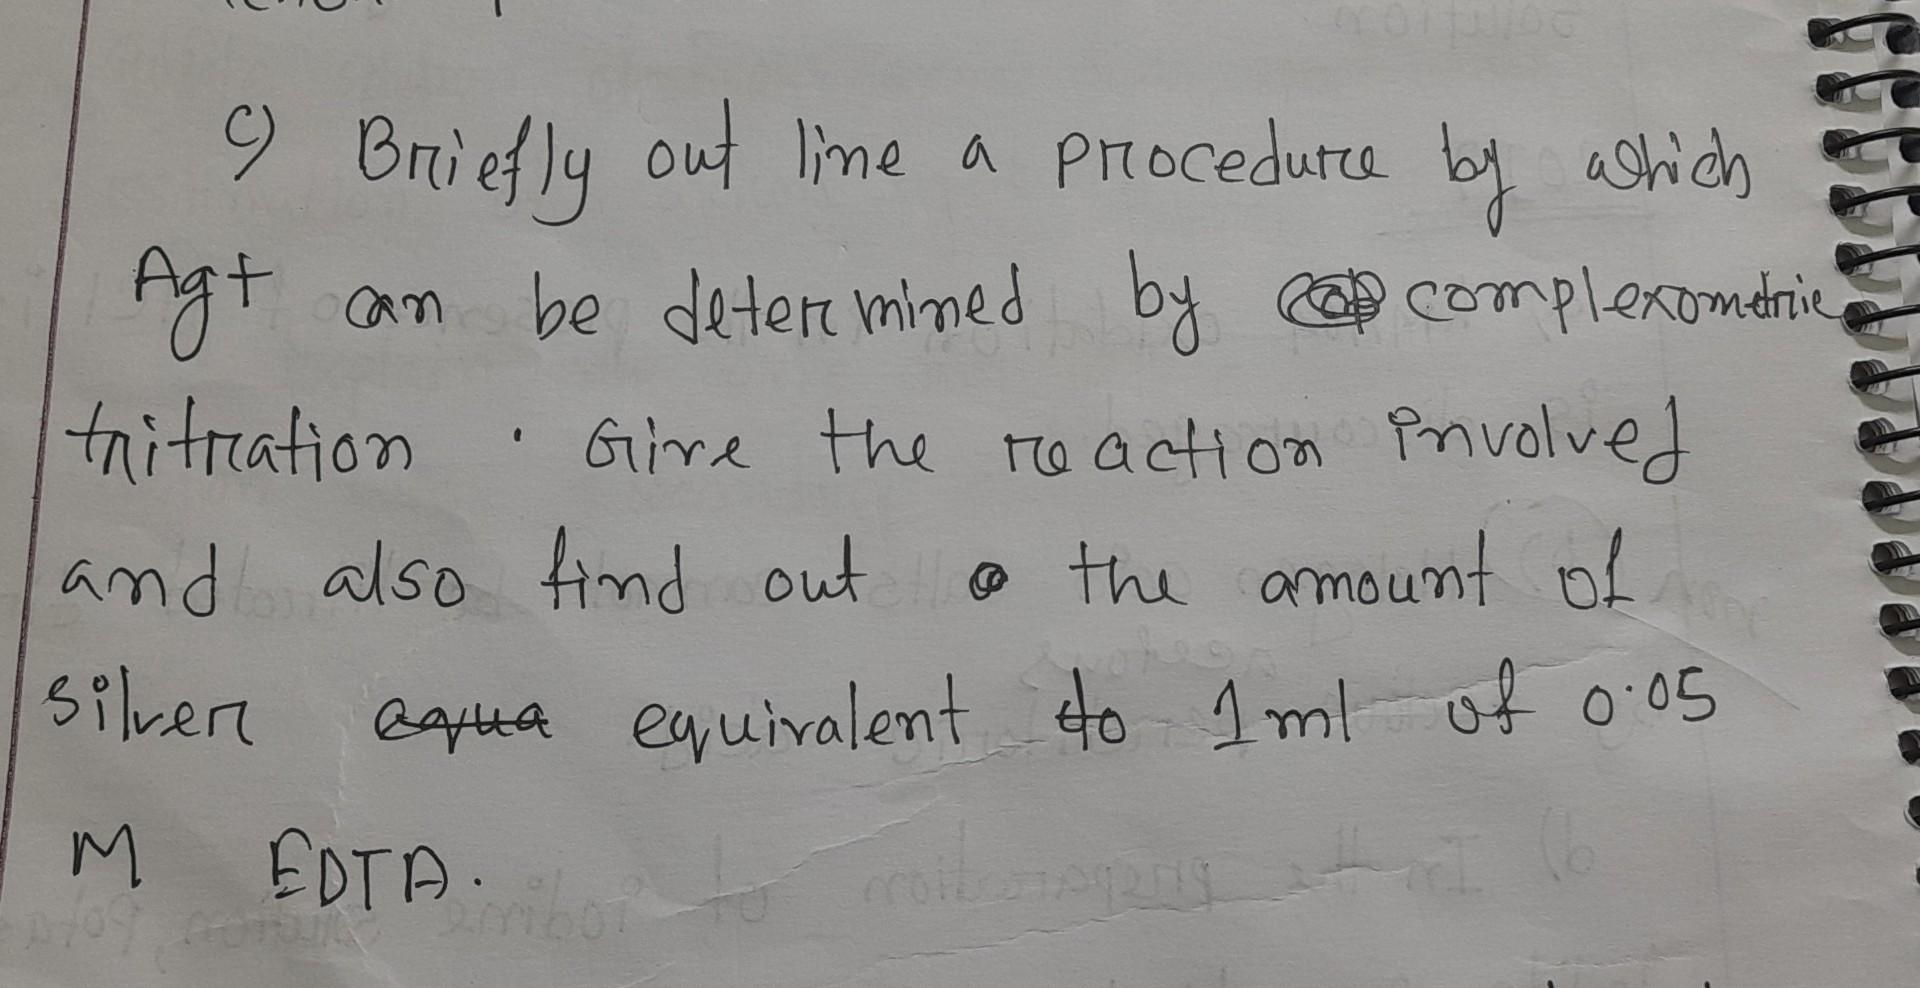 c) Briefly out line a procedure by which
Ag+ can be determined by complexometric
tritration . Give the reaction involved
and also find out the amount of
silver equivalent to 1 ml of 0.05
M EDTA.